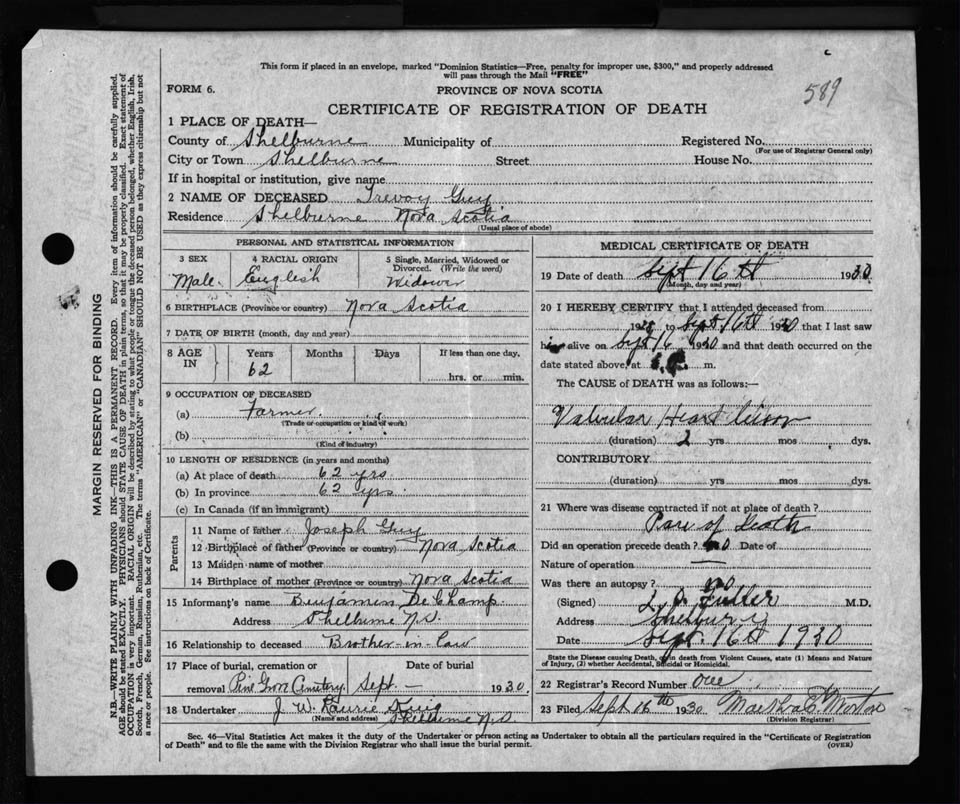 This form if placed in an envelope, marked "Dominion Statistics—Free, penalty for improper use, $300," and properly addressed
will pass through the Mail "FREE"
FORM 6.
PROVINCE OF NOVA SCOTIA
589
CERTIFICATE OF REGISTRATION OF DEATH
1 PLACE OF DEATH—
County of Shelburne Municipality of Registered No.
(For use of Registrar General only)
City or Town Shelburne Street House No.
If in hospital or institution, give name
2 NAME OF DECEASED Guy
Residence Shelburne Nova Scotia
(Usual place of abode)
PERSONAL AND STATISTICAL INFORMATION
3 SEX 4 RACIAL ORIGIN 5 Single, Married, Widowed or
Divorced. (Write the word)
Male English Widower
6 BIRTHPLACE (Province or country) Nova Scotia
7 DATE OF BIRTH (month, day and year)
8 AGE IN Years Months Days If less than one day,
62 hrs. or min.
9 OCCUPATION OF DECEASED
(a) Farmer
(Trade or occupation or kind of work)
(b)
(Kind of industry)
10 LENGTH OF RESIDENCE (in years and months)
(a) At place of death 62 yrs
(b) In province 62 yrs.
(c) In Canada (if an immigrant)
Parents
11 Name of father Joseph Guy
12 Birthplace of father (Province or country) Nova Scotia
13 Maiden name of mother
14 Birthplace of mother (Province or country) Nova Scotia
15 Informant's name Benjamin DeChamp
Address Shelburne N.S.
16 Relationship to deceased Brother-in-law
17 Place of burial, cremation or Date of burial
removal Pine Grove Cemetery Sept — 1930.
18 Undertaker J. W.
(Name and address) Shelburne N.S.
MEDICAL CERTIFICATE OF DEATH
19 Date of death Sept 16th 1930
(Month, day and year)
20 I HEREBY CERTIFY that I attended deceased from
to Sept 16th 1930 that I last saw
him alive on Sept 16 1930 and that death occurred on the
date stated above, at m.
The CAUSE of DEATH was as follows:—
Valvular Heart
(duration) 2 yrs mos dys.
CONTRIBUTORY
(duration) yrs mos dys.
21 Where was disease contracted if not at place of death?
of Death
Did an operation precede death? no Date of
Nature of operation —
Was there an autopsy? no
(Signed) Fuller M.D.
Address
Date Sept. 16th 1930
State the Disease causing Death, or in death from Violent Causes, state (1) Means and Nature
of Injury, (2) whether Accidental, Suicidal or Homicidal.
22 Registrar's Record Number one
23 Filed Sept 16th 1930
(Division Registrar)
Sec. 46—Vital Statistics Act makes it the duty of the Undertaker or person acting as Undertaker to obtain all the particulars required in the "Certificate of Registration
of Death" and to file the same with the Division Registrar who shall issue the burial permit.
(OVER)
MARGIN RESERVED FOR BINDING
N.B.—WRITE PLAINLY WITH UNFADING INK—THIS IS A PERMANENT RECORD. Every item of information should be carefully supplied.
AGE should be stated EXACTLY. PHYSICIANS should STATE CAUSE OF DEATH in plain terms, so that it may be properly classified. Exact statement of
OCCUPATION is very important. RACIAL ORIGIN will be described by stating to what people or tongue the deceased person belonged, whether English, Irish,
Scotch, French, German, Russian, Ruthenian, etc. The terms "AMERICAN" or "CANADIAN" SHOULD NOT BE USED as they express citizenship but not
a race or people. See instructions on back of Certificate.